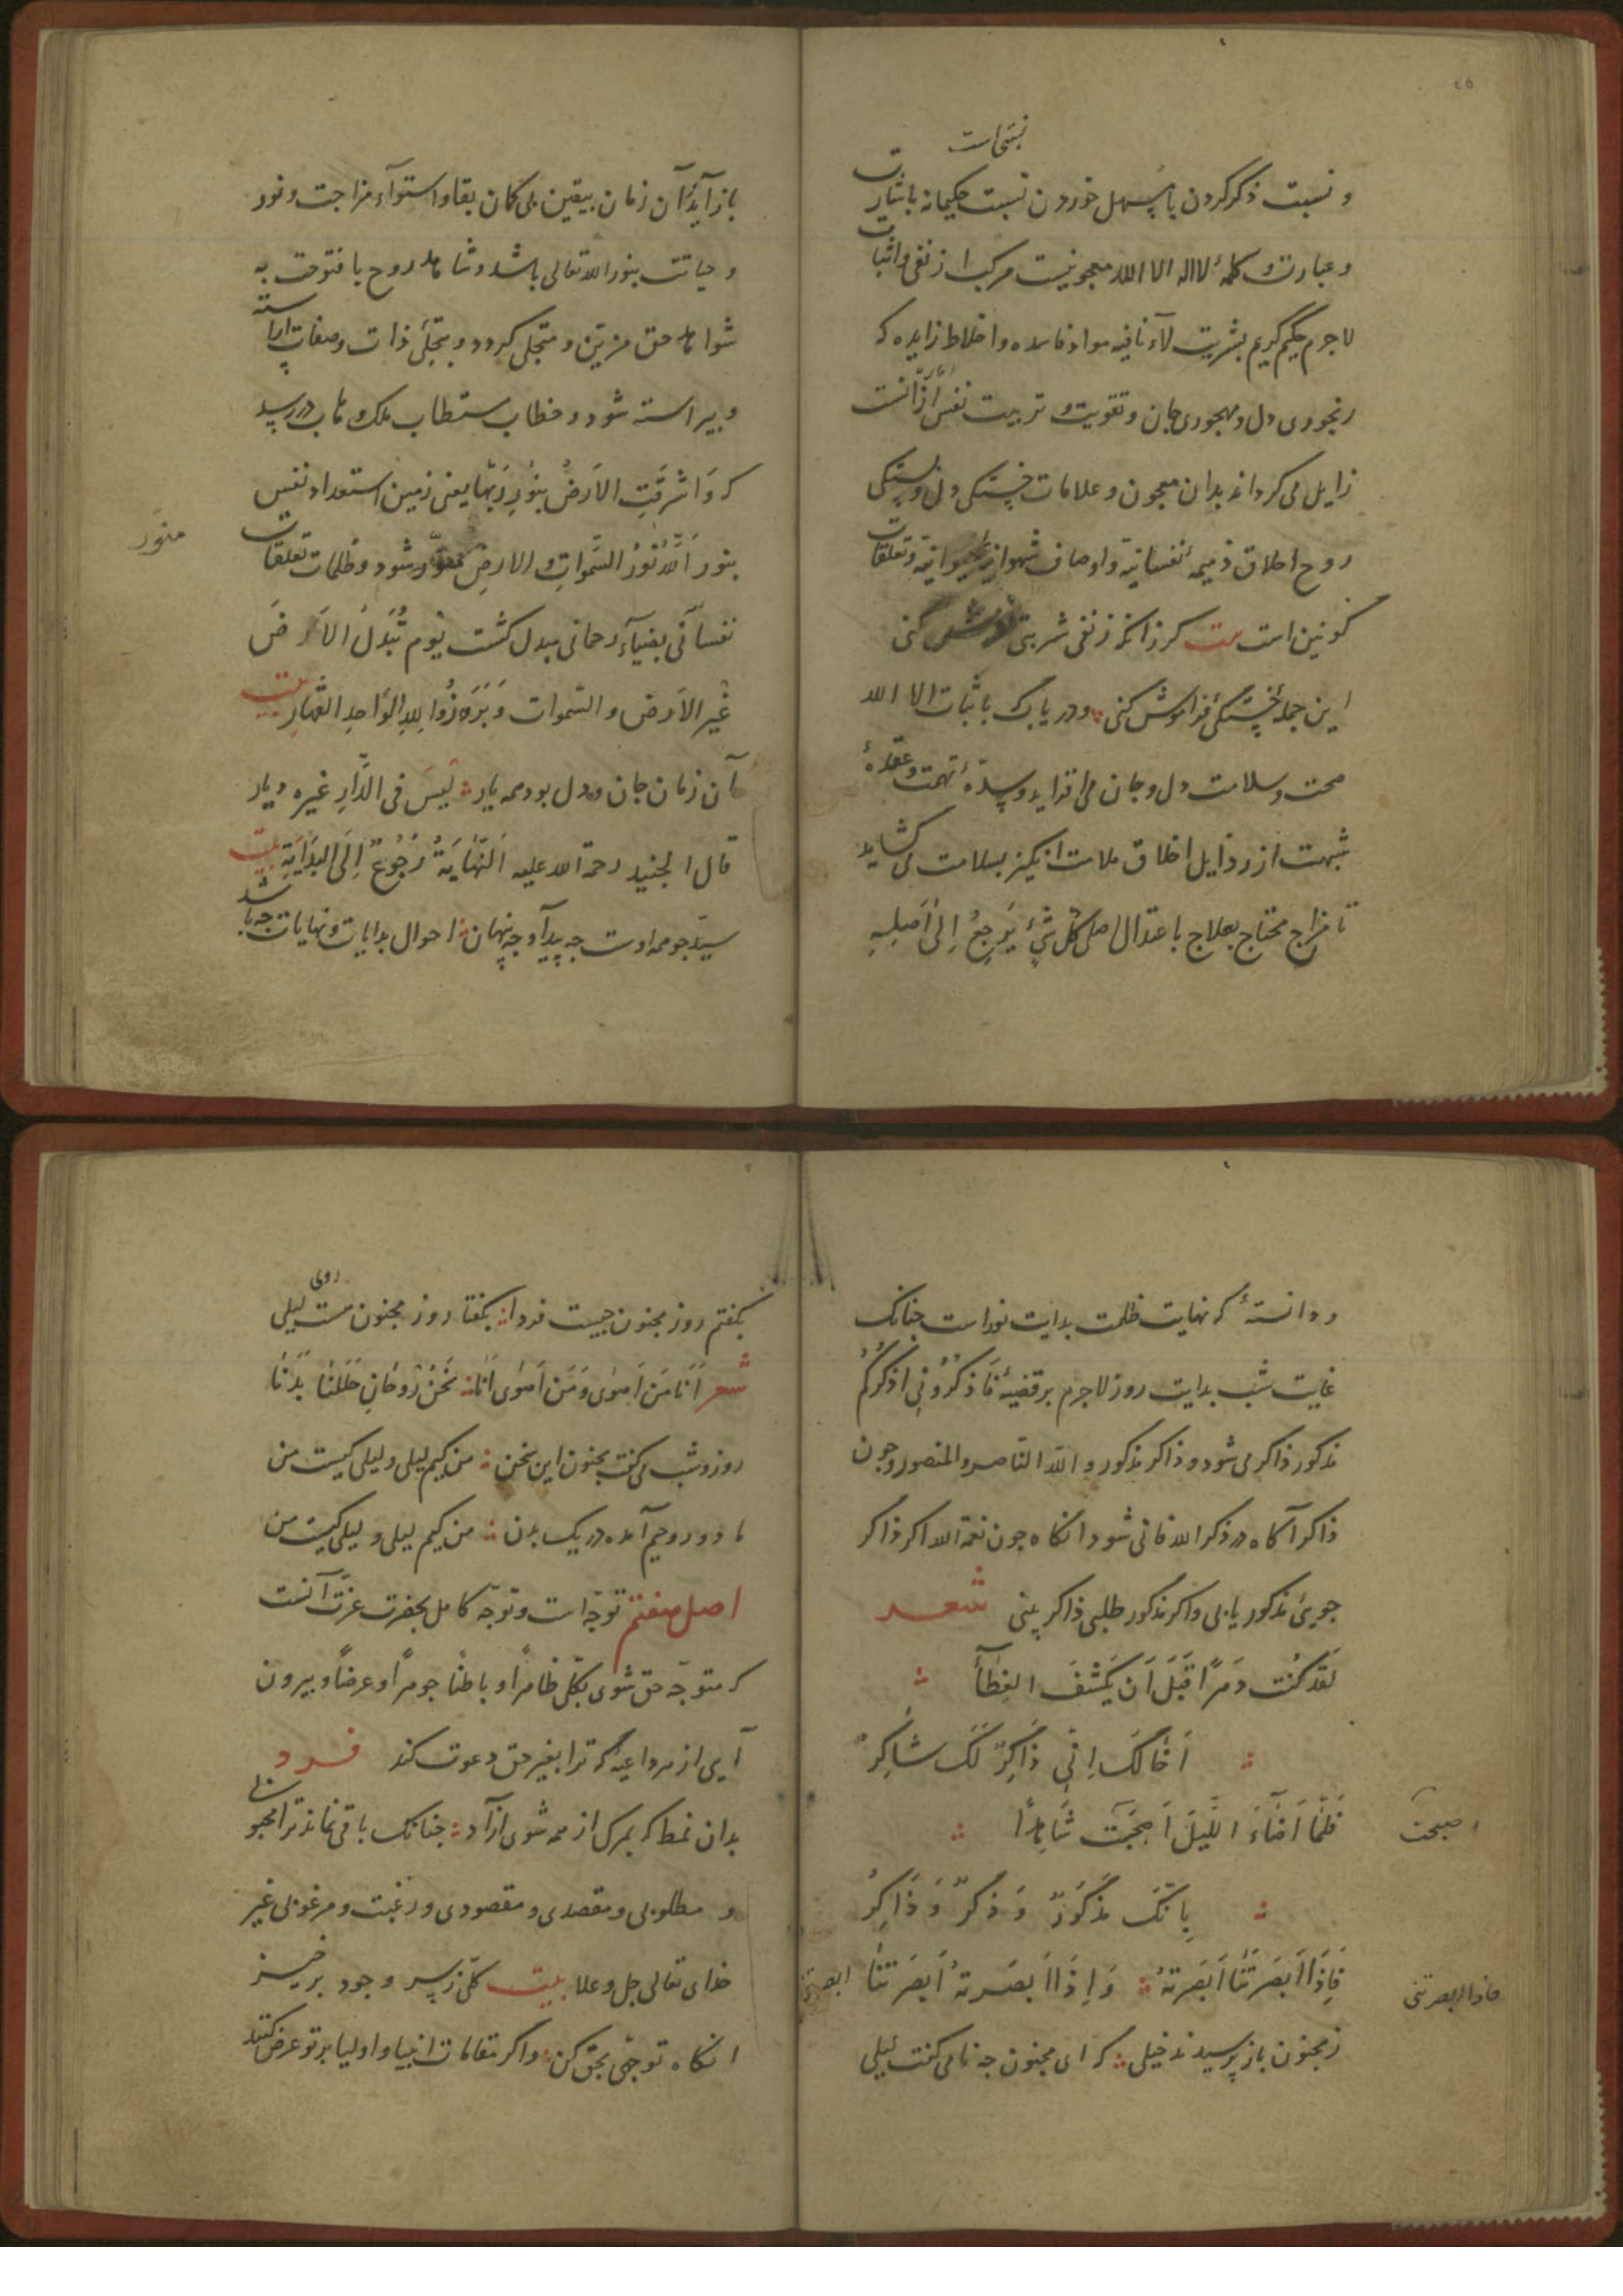 ٤٥
نسخاست
و نسبت ذکر کردن با مسهل خوردن نسبت حکیمانه باشارت
و عبارت و کلمهٔ لا اله الا الله معجونیست مرکب از نفی و اثبات
لاجرم حکیم کریم بشربت لاء نافیه مواد فاسده و اخلاط زایده که
رنجوری دل و مهجوری جان و تقویت و تربیت نفس امّاره ازآنست
زایل می کرداند بدان معجون و علامات خستکی دل و بستکی
روح اخلاق ذمیمهٔ نفسانیّه و اوصاف شهوانیه حیوانیّه و تعلقات
کونین است بیت کر زانکه ز نفی شربتی نوش کنی
این جمله خستکی فراموش کنی و در یابک باثبات الا الله
صحت و سلامت دل و جان می افزاید و سدّهٔ تهمت و عقدهٔ
شبهت از رذایل اخلاق ملامت انکیز بسلامت می کشاید
تا مزاج محتاج بعلاج باعتدال اصلی کُلُّ شَیْءٍ یَرجِعُ اِلیٰ اَصلِهِ
باز آید آن زمان بیقین بی کمان بقا و استوآء مزاجت و نور
و حیاتت بنور الله تعالی باشد و شاهد روح با فتوحت به
شواهد حق مزیّن و متجلی کردد و بتجلّی ذات و صفات آراسته
و پیراسته شود و خطاب مستطاب ملک وهاب در رسد
که وَاَشرَقَتِ الاَرضُ بِنُورِ رَبِّهَا یعنی زمین استعداد نفس
بنور اَللهُ نُورُ السَّمٰواتِ والارضِ منوّر شود و ظلمات تعلقات
منوّر
نفسانی بضیآء رحمانی مبدل کشت یَوْمَ تُبَدَّلُ الاَرضُ
غَیْرَ الاَرضِ و السّموات وَبَرَزُوا لِلهِ الوَاحِدِ القَهَّارِ بیت
آن زمان جان و دل بود همه یار لَیسَ فی الدَّارِ غیره دیار
قال الجنید رحمة الله علیه اَلنِّهَایَةُ رُجُوعٌ اِلَی البِدَایَةِ بیت
سیّد جو همه اوست جه پیدا و جه پنهان احوال بدایات و نهایات جه باشد
و دانستهٔ که نهایت ظلمت بدایت نوراست جنانک
غایت شب بدایت روز لاجرم بر قضیهٔ فَاذکُرُونِی اَذکُرْکُمْ
مذکور ذاکر می شود و ذاکر مذکور و الله الناصر والمنصور و جون
ذاکر آکاه در ذکر الله فانی شود انکاه جون نعمة الله اکر ذاکر
جویی مذکور یابی و اکر مذکور طلبی ذاکر بینی شعر
لَقَد کُنت دَهرًا قَبلَ اَن یَکشِفَ الغِطَآءَ
اَخَالَکَ اِنّی ذَاکِرٌ لَکَ شَاکِرُ
فَلَمَّا اَضَآءَ اللَّیلَ اَصبَحتَ شَاهِدًا
اصبحت
بِاَنّکَ مَذکُورٌ وَذِکرٌ وَذَاکِرُ
فَاِذَا اَبصَرتَنَا اَبصَرتَهُ وَاِذَا اَبصَرتَهُ اَبصَرتَنَا
فاذا ابصرتنی
ز مجنون باز پرسیدند خیلی که ای مجنون جه نامی کفت لیلی
بکفتم روز مجنون جیست فردا بکفتا روز مجنون مست لیلی
روی
شعر اَنَا مَن اَهوٰی وَمَن اَهوٰی اَنَا نَحنُ رُوحَانِ حَلَلنَا بَدَنَا
روز و شب می کفت مجنون این سخن من کیم لیلی و لیلی کیست من
ما دو روحیم آمده در یک بدن من کیم لیلی و لیلی کیست من
اصل هفتم توجّه است و توجّه کامل بحضرت عزّت آنست
که متوجّه حق شوی بکلّی ظاهرًا و باطنًا جوهرًا و عرضًا و بیرون
آیی از هر داعیه که ترا بغیر حق دعوت کند فرد
بدان نمط که بمرک از همه شوی آزاد جنانک باقی نماند ترا محبوبی
و مطلوبی و مقصدی و مقصودی و رغبت و مرغوبی غیر
خدای تعالی جل و علا بیت کلّی ز سر وجود برخیز
انکاه توجهی بحق کن و اکر مقامات انبیا و اولیا بر تو عرض کنند